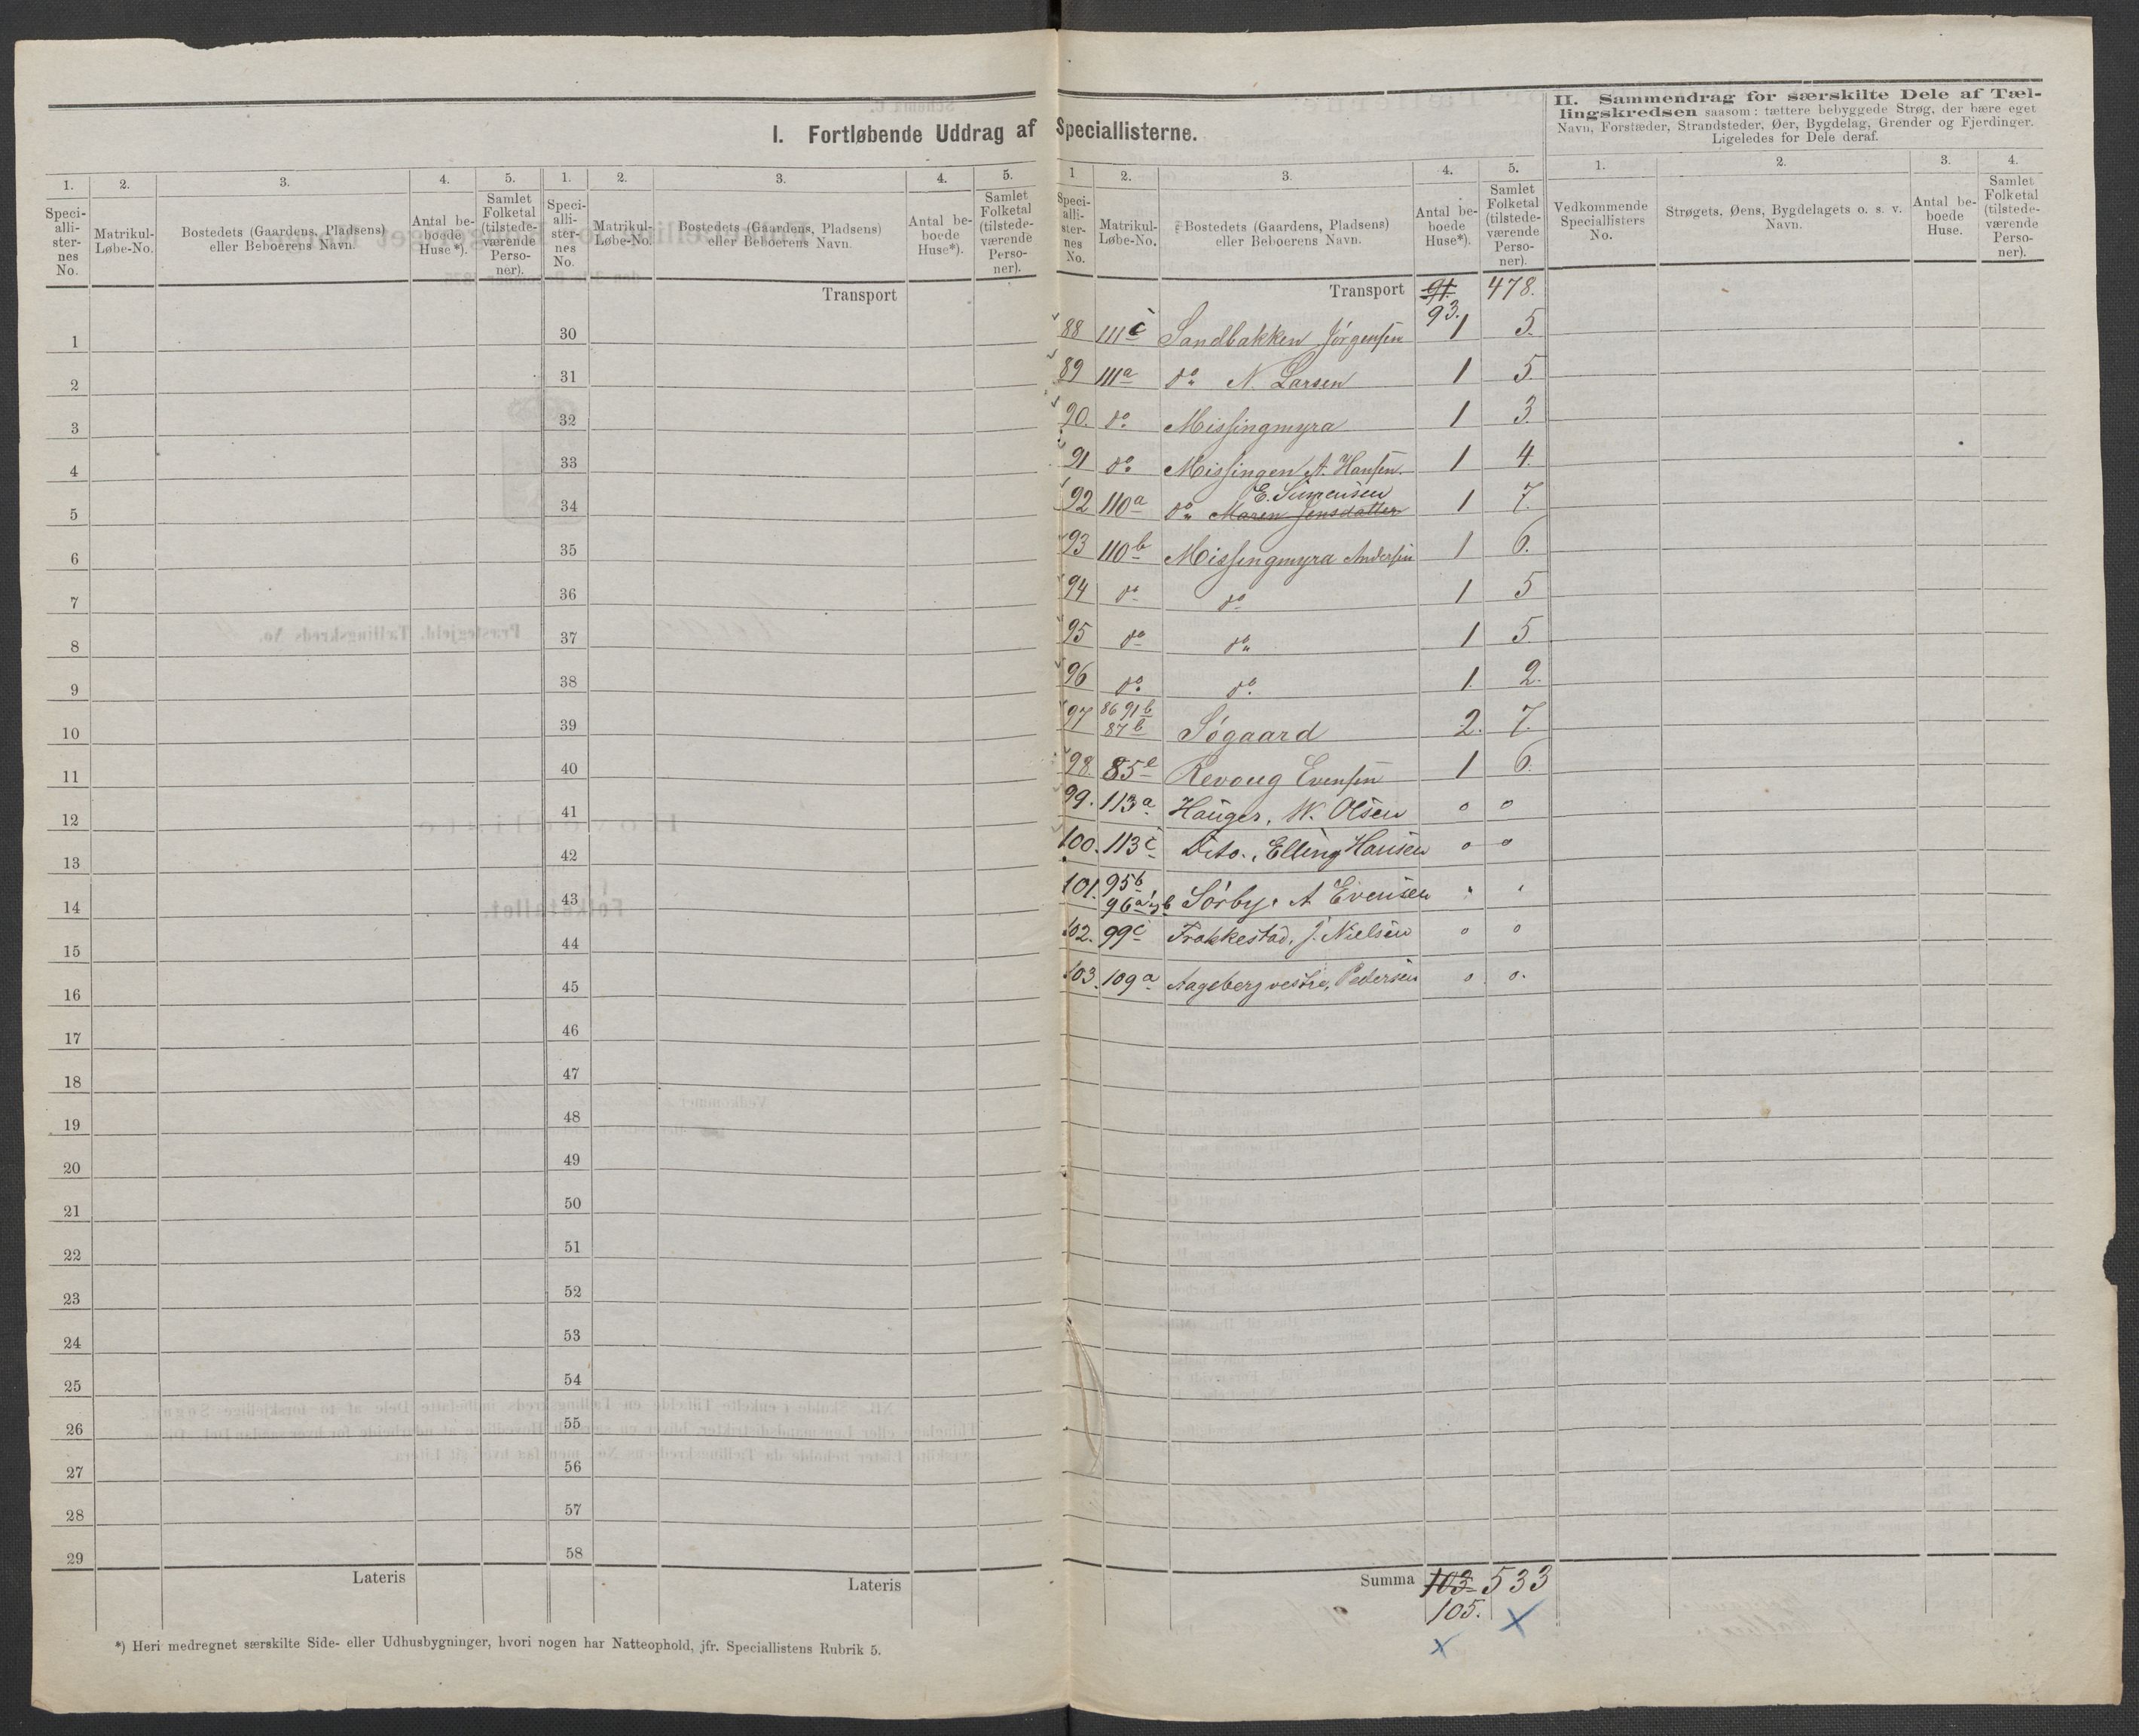 I. Fortløbende Uddrag af Speciallisterne.
II. Sammendrag for særskilte Dele af Tæl-
lingskredsen saasom: tættere bebyggede Strøg, der bære eget
Navn, Forstæder, Strandsteder, Øer, Bygdelag, Grender og Fjerdinger.
Ligeledes for Dele deraf.
1. 2. 3. 4. 5. 1. 2. 3. 4. 5.
Speci-
alli-
ster-
nes
No.
Matrikul-
Løbe-No.
Bostedets (Gaardens, Pladsens)
eller Beboerens Navn.
Antal be-
boede
Huse*).
Samlet
Folketal
(tilstede-
værende
Perso-
ner).
Speci-
alli-
ster-
nes
No.
Matrikul-
Løbe-No.
Bostedets (Gaardens, Pladsens)
eller Beboerens Navn.
Antal be-
boede
Huse*).
Samlet
Folketal
(tilstede-
værende
Perso-
ner).
Transport
1 30
2 31
3 32
4 33
5 34
6 35
7 36
8 37
9 38
10 39
11 40
12 41
13 42
14 43
15 44
16 45
17 46
18 47
19 48
20 49
21 50
22 51
23 52
24 53
25 54
26 55
27 56
28 57
29 58
Lateris Lateris
*) Heri medregnet særskilte Side- eller Udhusbygninger, hvori nogen har Natteophold, jfr. Speciallistens Rubrik 5.
1 2. 3. 4. 5.
Speci-
alli-
ster-
nes
No.
Matrikul-
Løbe-No.
Bostedets (Gaardens, Pladsens)
eller Beboerens Navn.
Antal be-
boede
Huse*).
Samlet
Folketal
(tilstede-
værende
Perso-
ner).
1. 2. 3. 4.
Vedkommende
Speciallisters
No.
Strøgets, Øens, Bygdelagets o. s. v.
Navn.
Antal be-
boede
Huse.
Samlet
Folketal
(tilstede-
værende
Perso-
ner).
Transport 91. 478.
93.
88 111c Sandbakken Jørgensen 1 5.
89 111a do N. Larsen 1 5
90. do Missingmyra 1 3.
91 do Missingen A. Hansen. 1 4.
E. Simensen
92 110a do Maren Jensdatter 1 7.
93 110b Missingmyra Andersen 1 6.
94 do do 1 5
95 do do 1 5.
96 do do 1. 2.
97 86 91b
87b Søgaard 2. 7.
98. 85e Revoug Evensen 1 6.
99. 113a Hauger, W. Olsen o o
100. 113c Dito., Elling Hansen o o
101. 95b
96a&b Sørby, A Evensen " "
102. 99c Frakkestad, J. Nielsen o o
103. 109a Aageberg vestre, Pedersen o o.
Summa 103 533
105.